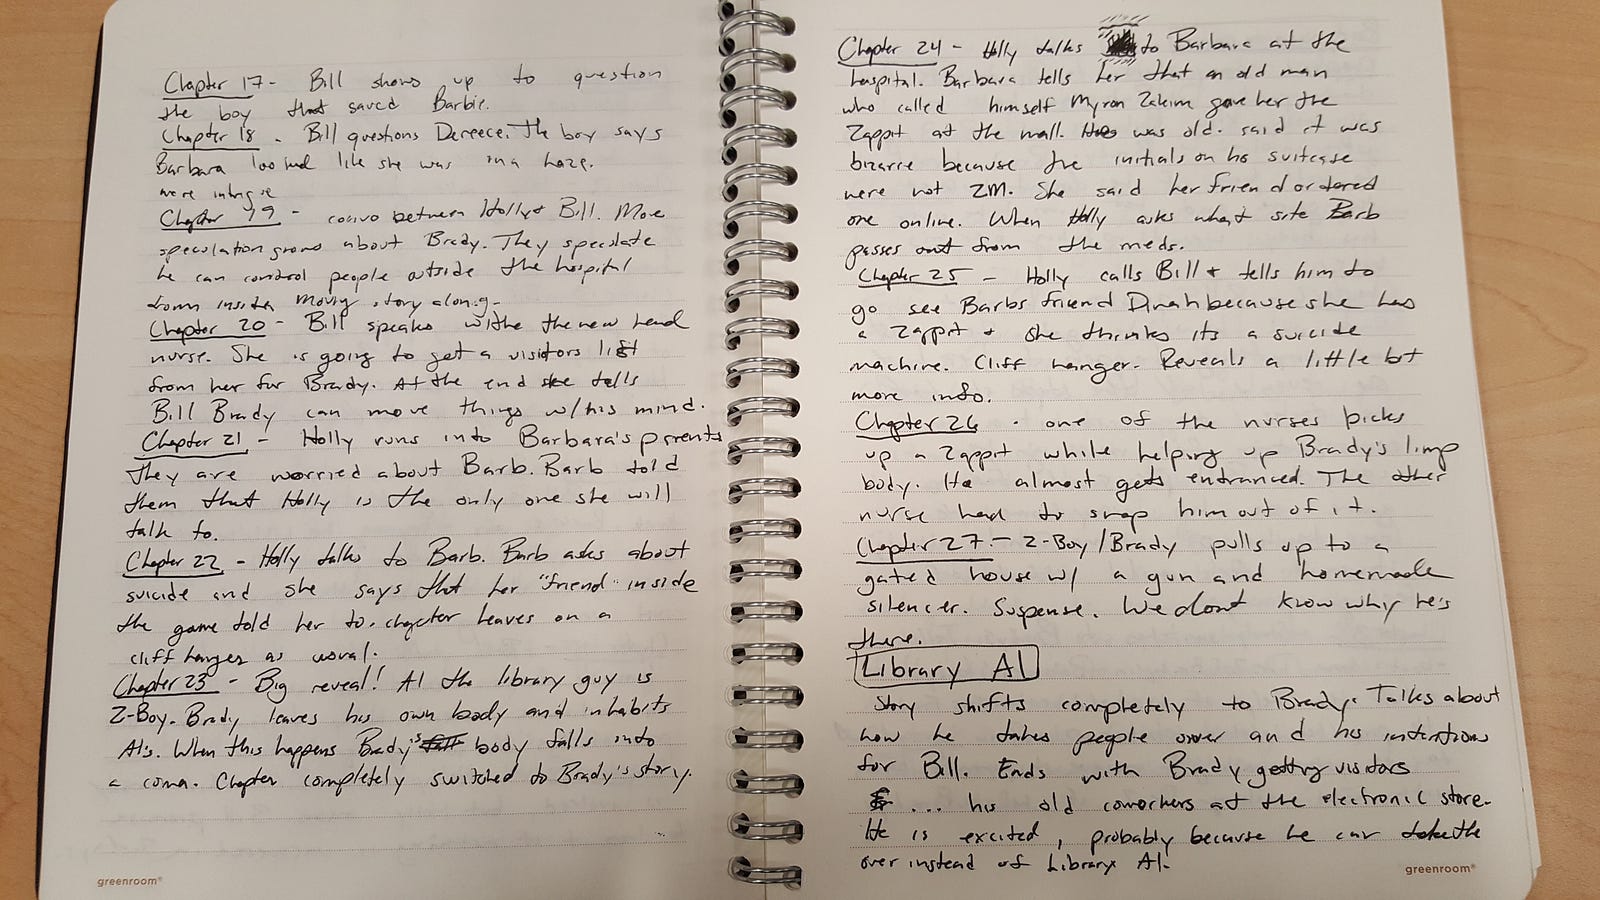 Chapter 17- Bill shows up to question
the boy that saved Barbie.
Chapter 18. Bill questions Dereece. The boy says
Barbara looked like she was in a haze.
more intrigue
Chapter 19 - convo between Holly & Bill. More
speculation grows about Brady. They speculate
he can control people outside the hospital
from inside. Moving story along-
Chapter 20 - Bill speaks withe the new head
nurse. She is going to get a visitors list
from her for Brady. At the end she tells
Bill Brady can move things w/his mind.
Chapter 21 - Holly runs into Barbara's parents
They are worried about Barb. Barb told
them that Holly is the only one she will
talk to.
Chapter 22 - Holly talks to Barb. Barb asks about
suicide and she says that her "friend" inside
the game told her to. chapter leaves on a
cliff hanger as usual.
Chapter 23 - Big reveal! Al the library guy is
Z-Boy. Brady leaves his own body and inhabits
Al's. When this happens Brady's body falls into
a coma. Chapter completely switched to Brady's story.
greenroom®
Chapter 24 - Holly talks to Barbara at the
hospital. Barbara tells her that an old man
who called himself Myron Zakim gave her the
Zappit at the mall. was old. said it was
bizarre because the initials on his suitcase
were not ZM. She said her friend ordered
one online. When Holly asks what site Barb
passes out from the meds.
Chapter 25 - Holly calls Bill & tells him to
go see Barbs friend Dinah because she has
a Zappit & she thinks its a suicide
machine. Cliff hanger. Reveals a little bit
more info.
Chapter 26 - one of the nurses picks
up a Zappit while helping up Brady's limp
body. He almost gets entranced. The other
nurse had to snap him out of it.
Chapter 27 - Z-Boy/Brady pulls up to a
gated house w/ a gun and homemade
silencer. Suspense. We dont know why he's
there.
Library Al
Story shifts completely to Brady. Talks about
how he takes people over and his intentions
for Bill. Ends with Brady getting visitors
... his old coworkers at the electronic store.
He is excited, probably because he can take the
over instead of Library Al.
greenroom®